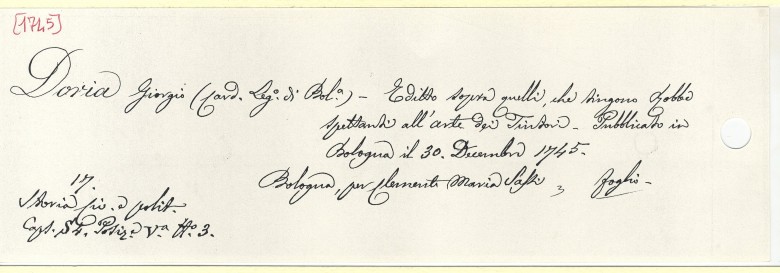 [1745]
Doria Giorgio (Card. Leg.º di Bol.ª) - Editto sopra quelli, che tingono Robbe
spettanti all'arte dei Tintori - Pubblicato in
Bologna il 30. Decembre 1745.
Bologna, per Clemente Maria Sassi, foglio -
17.
Storia civ. e polit.
Caps. 54. Posiz.e V.a N.o 3.